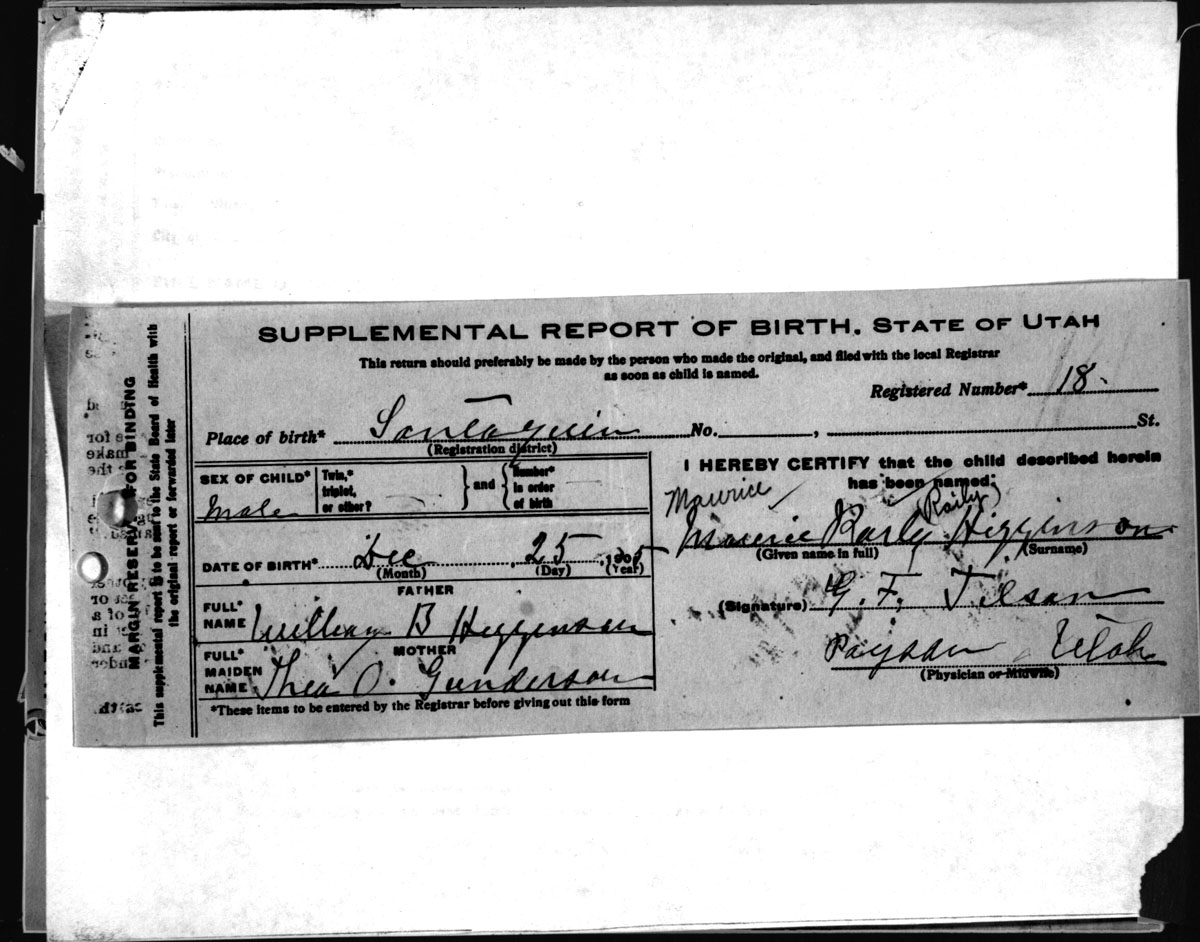 SUPPLEMENTAL REPORT OF BIRTH. STATE OF UTAH
This return should preferably be made by the person who made the original, and filed with the local Registrar
as soon as child is named.
Registered Number* 18.
Place of birth* Santaquin No. , St.
(Registration district)
SEX OF CHILD* Male
Twin,* triplet, or other?
and
Number* in order of birth
DATE OF BIRTH* Dec 25, 1905
(Month) (Day) (Year)
FATHER
FULL* NAME William B Higginson
MOTHER
FULL* MAIDEN NAME Thea O. Gunderson
*These items to be entered by the Registrar before giving out this form
I HEREBY CERTIFY that the child described herein
has been named:
Maurice (Raily)
Maurice Rarly Higginson
(Given name in full) (Surname)
(Signature) G. F. Tilson
Payson, Utah
(Physician or Midwife)
MARGIN RESERV FOR BINDING
This supplemental report is to be sent to the State Board of Health with
the original report or forwarded later